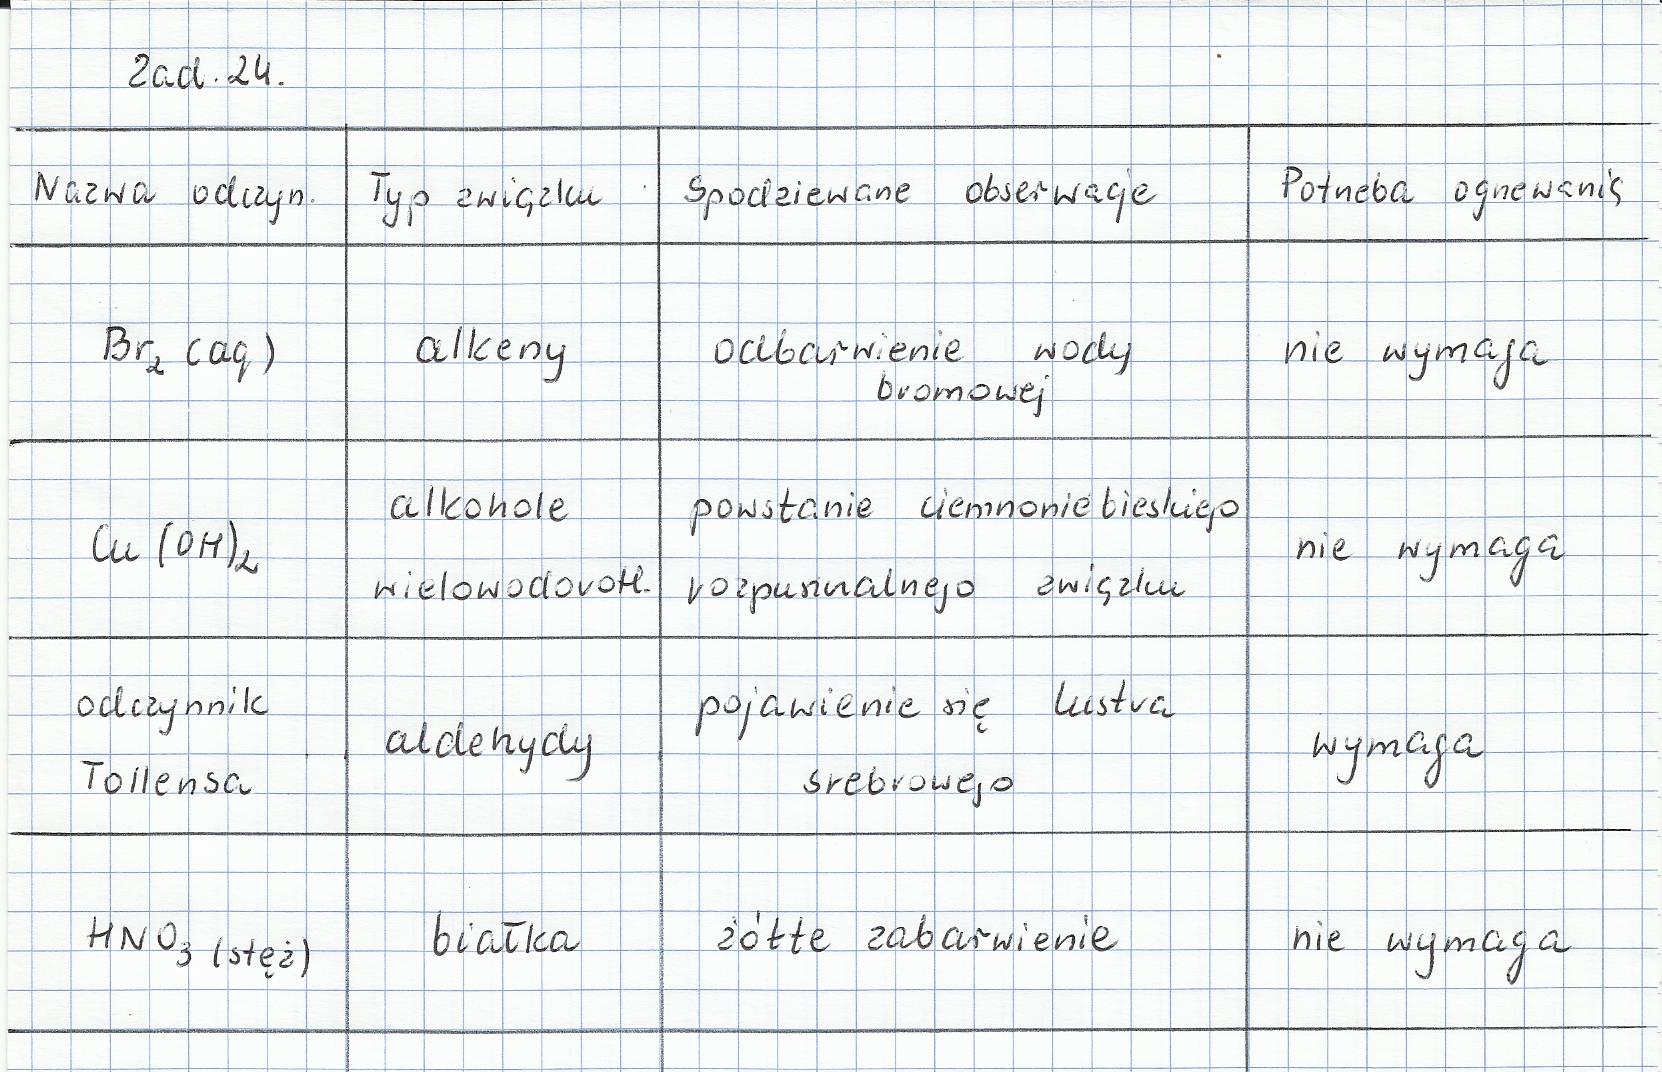 Zad. 24.
Nazwa odczyn. Typ związku Spodziewane obserwacje Potrzeba ogrzewania
Br₂ (aq) alkeny odbarwienie wody bromowej nie wymaga
Cu(OH)₂ alkohole wielowodorotl. powstanie ciemnoniebieskiego rozpuszczalnego związku nie wymaga
odczynnik Tollensa aldehydy pojawienie się lustra srebrowego wymaga
HNO₃ (stęż) białka żółte zabarwienie nie wymaga